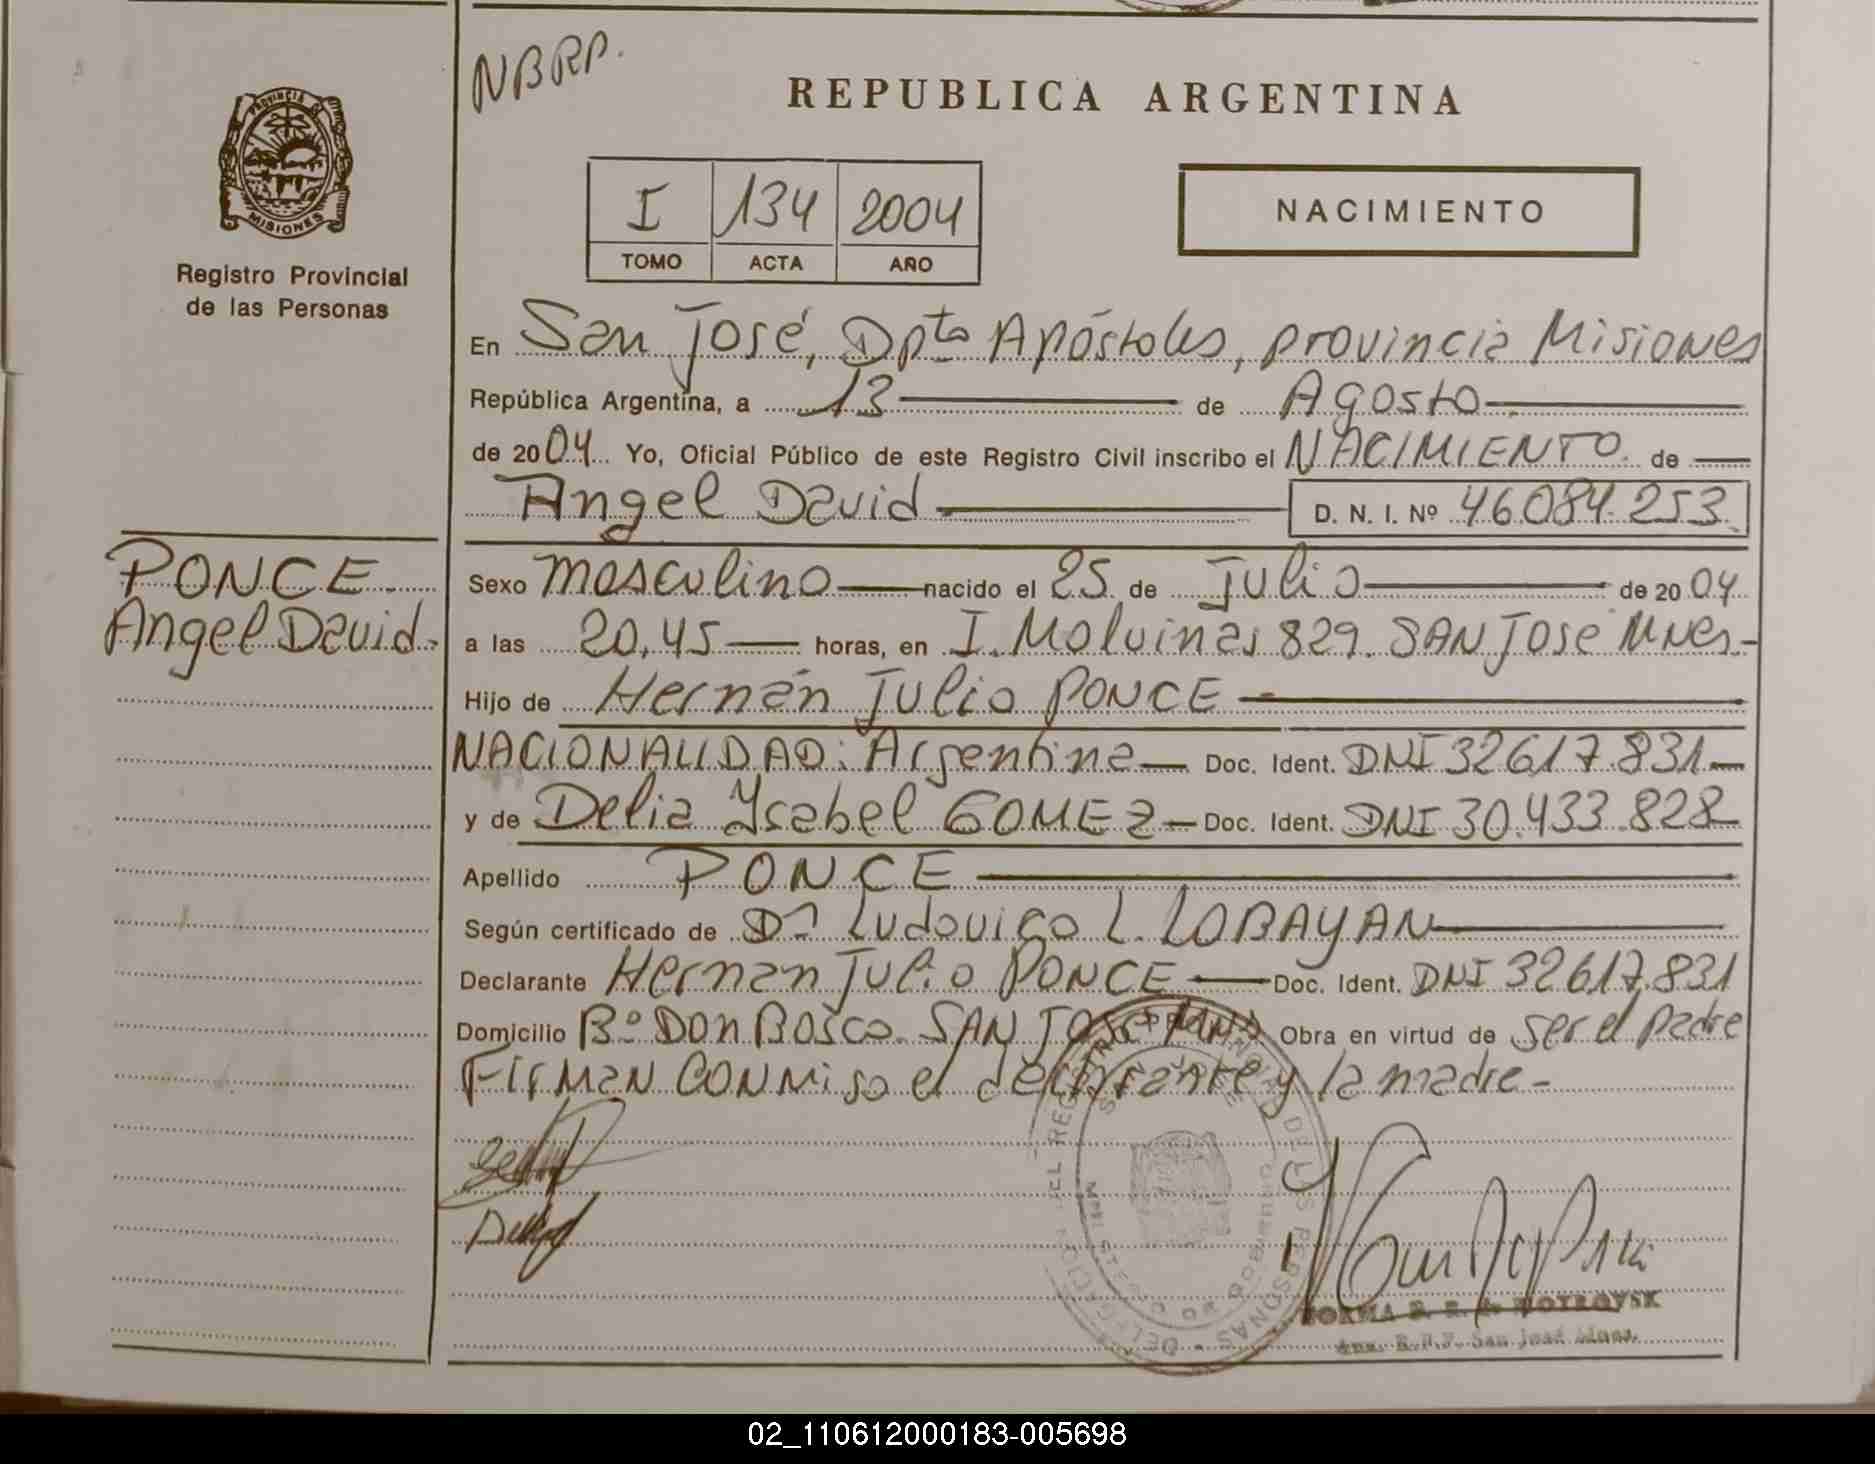 NBRP.
REPUBLICA ARGENTINA
PROVINCIA
MISIONES
Registro Provincial
de las Personas
I 134 2004
TOMO ACTA AÑO
NACIMIENTO
En San José, Dpto Apóstoles, provincia Misiones
República Argentina, a 13 de Agosto
de 2004 Yo, Oficial Público de este Registro Civil inscribo el NACIMIENTO de
Angel David D. N. I. Nº 46084.253
PONCE
Angel David
Sexo masculino nacido el 25 de Julio de 2004
a las 20,45 horas, en I. Malvinas 829. SAN José Mnes.-
Hijo de Hernán Julio PONCE
NACIONALIDAD: Argentina Doc. Ident. DNI 32617.831
y de Delia Ysabel GOMEZ Doc. Ident. DNI 30.433.828
Apellido PONCE
Según certificado de Dr Ludovico L. LOBAYAN
Declarante Hernan Julio PONCE Doc. Ident. DNI 32617.831
Domicilio Bº Don Bosco. SAN José Obra en virtud de ser el padre
Firman conmigo el declarante y la madre-
DELEGACION DEL REGISTRO PROVINCIAL DE LAS PERSONAS
SAN JOSE
NORMA
R.P.P. San José Mnes.
02_110612000183-005698